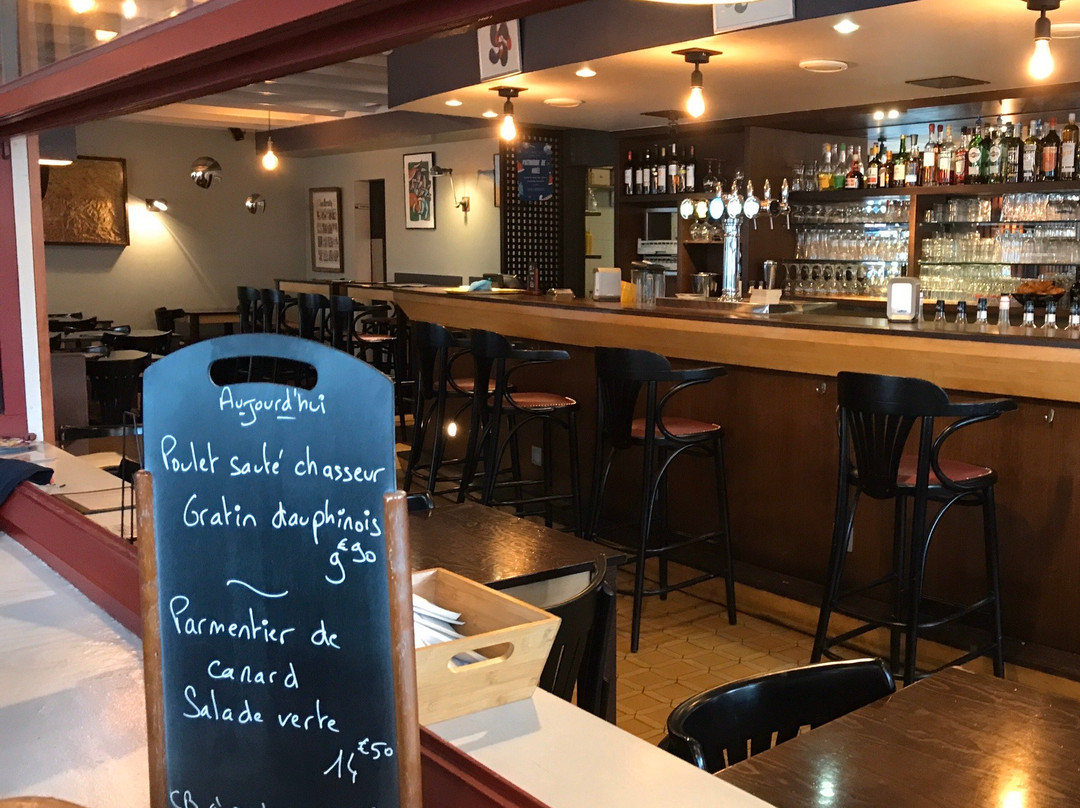 Aujourd'hui
Poulet sauté chasseur
Gratin dauphinois
9€90
Parmentier de
canard
Salade verte
14€50
CB